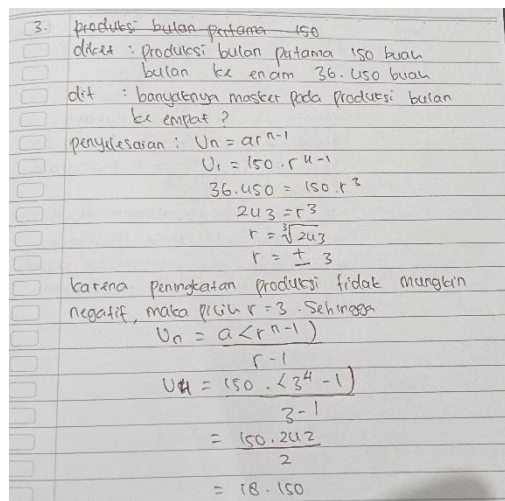 3. produksi bulan pertama 150
diket : produksi bulan pertama 150 buah
bulan ke enam 36.450 buah
dit : banyaknya masker pada produksi bulan
ke empat ?
penyelesaian : Un = ar^n-1
U1 = 150 . r^4-1
36.450 = 150 . r^3
243 = r^3
r = ∛243
r = ± 3
karena peningkatan produksi tidak mungkin
negatif, maka pilih r = 3 . Sehingga
Un = a(r^n-1)
r - 1
U4 = 150 . (3^4 - 1)
3 - 1
= 150.242
2
= 18.150